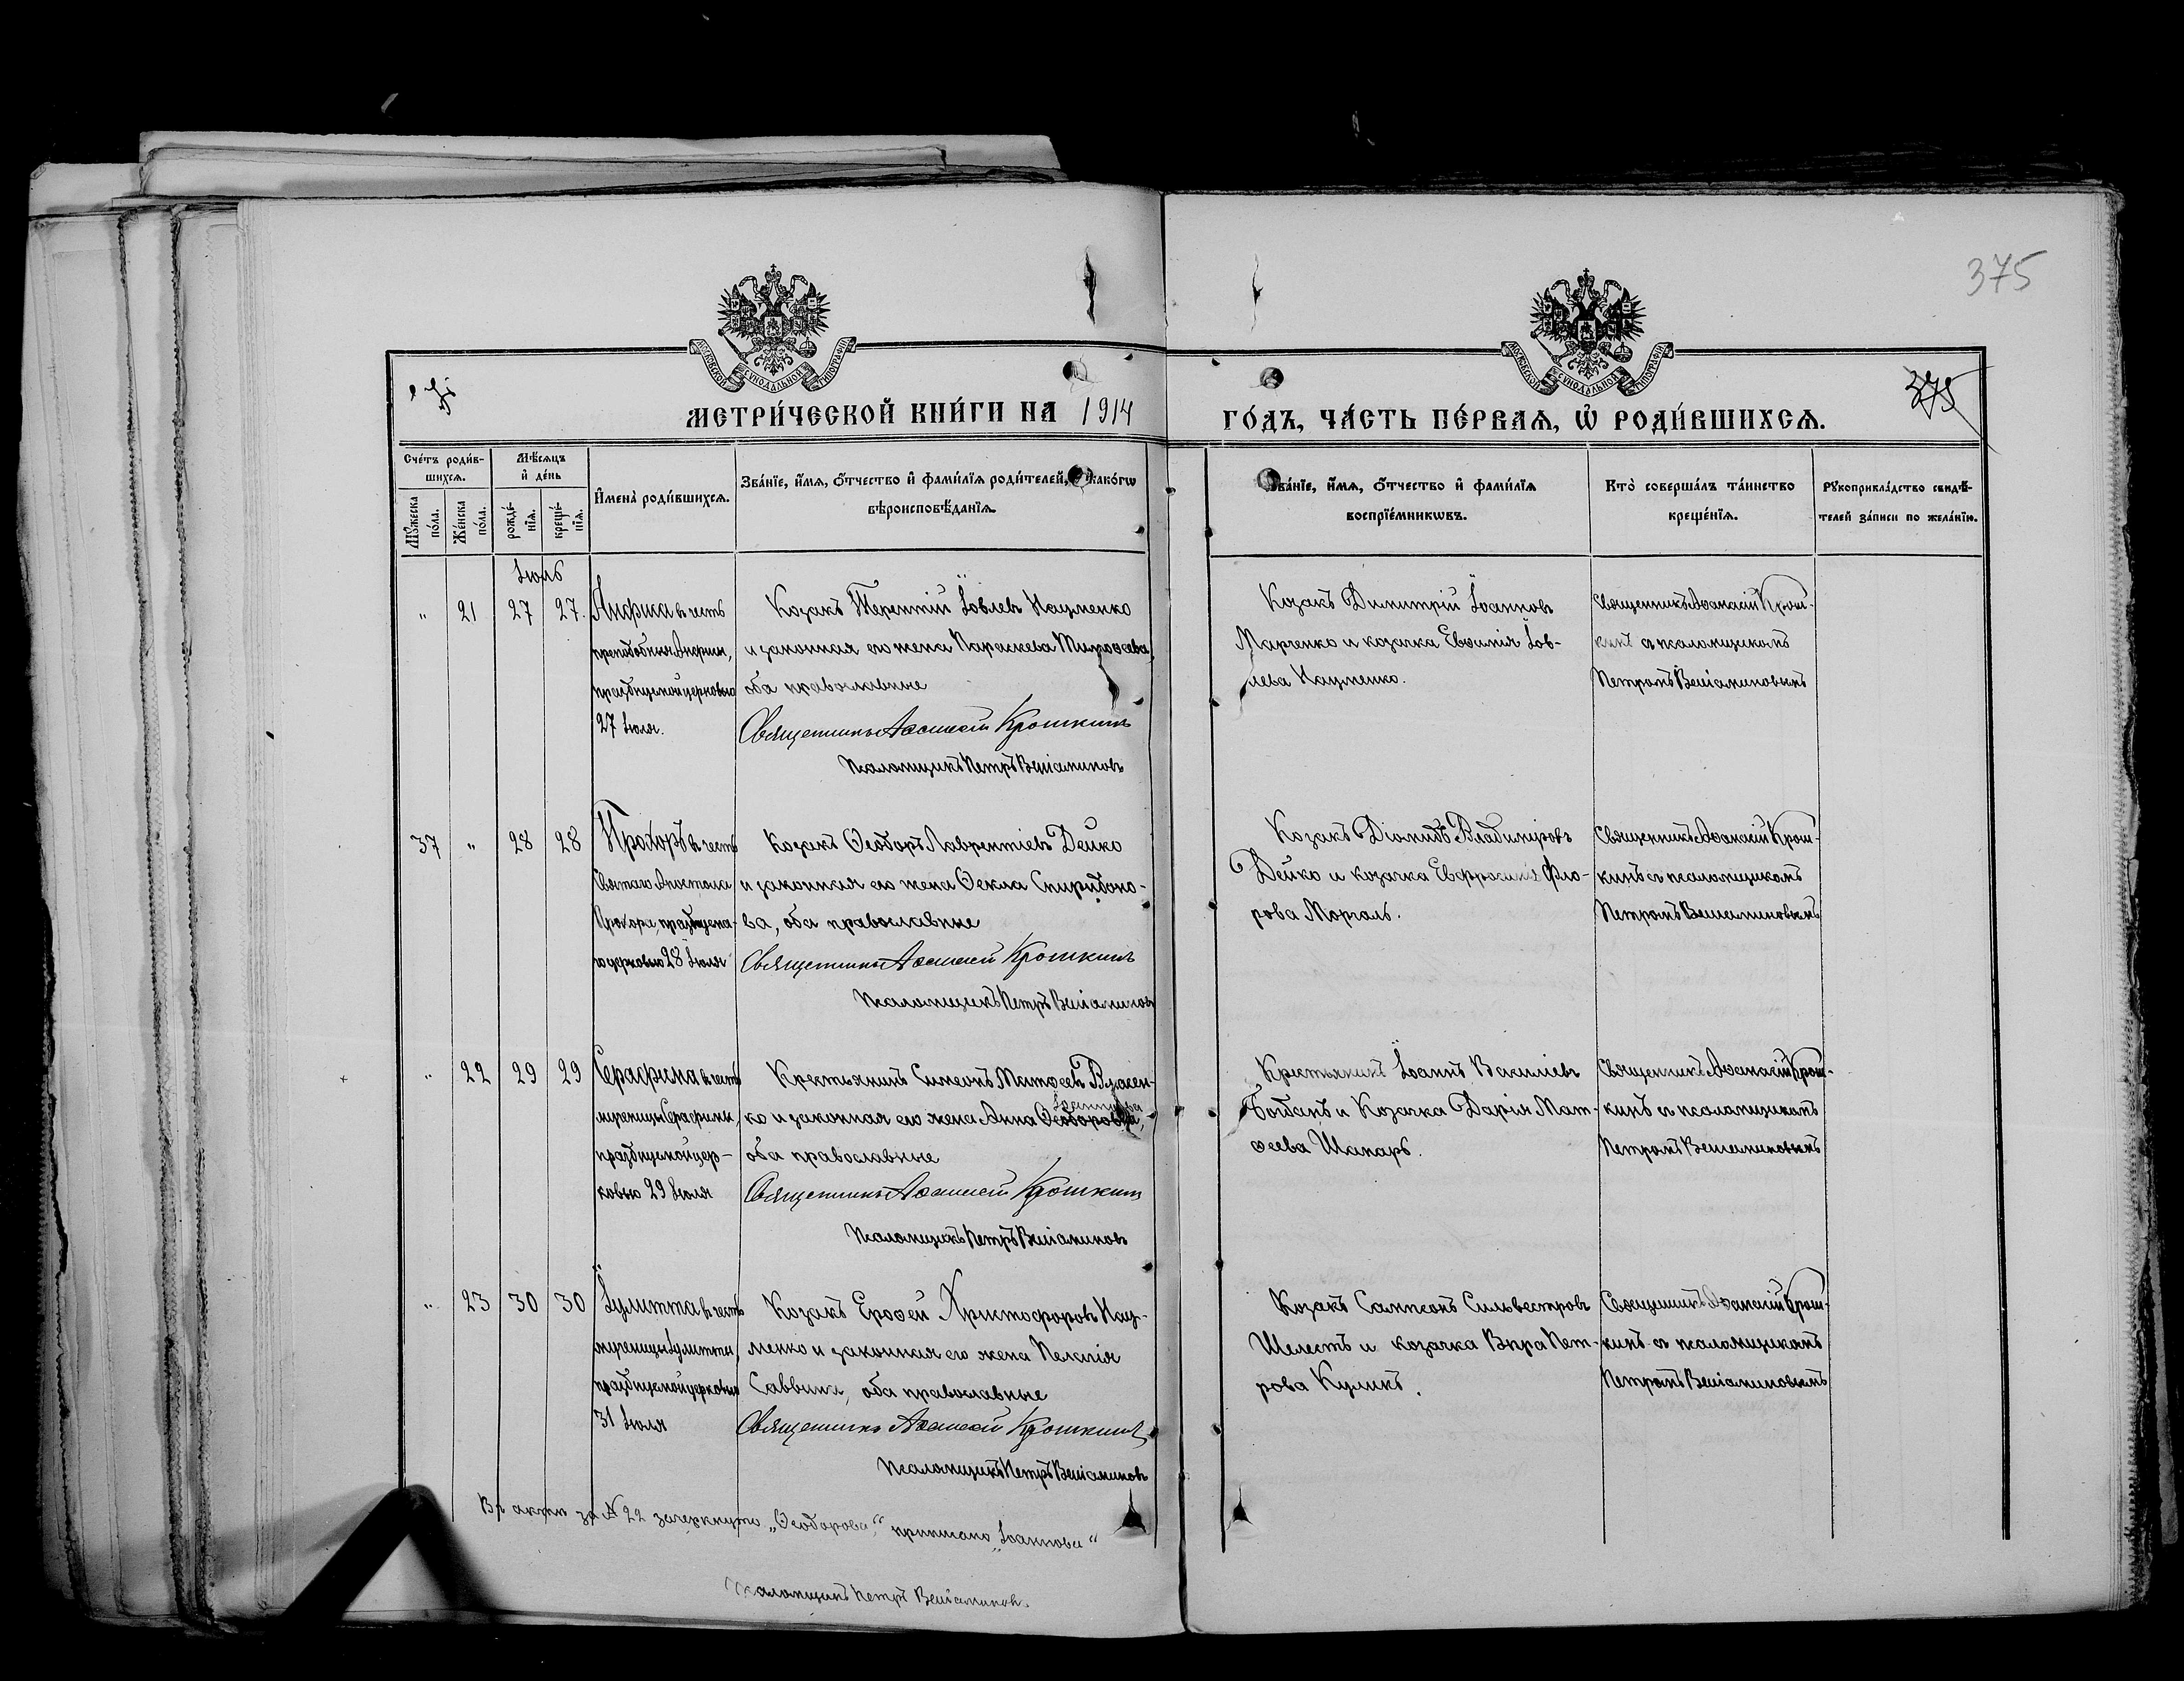 375
МОСКОВСКОЙ СѴНОДАЛЬНОЙ ТИПОГРАФІИ
МОСКОВСКОЙ СѴНОДАЛЬНОЙ ТИПОГРАФІИ
375
МЕТРИ́ЧЕСКОЙ КНИ́ГИ НА 1914 ГО́ДЪ, ЧА́СТЬ ПЕ́РВАѦ, Ѡ҆ РОДИ́ВШИХСѦ.
Сче́тъ роди́в-
шихсѧ.
Мꙋ́жеска по́ла.
Же́нска по́ла.
Мѣ́сѧцъ и҆ де́нь
рожде́-нїѧ.
креще́-нїѧ.
И҆мена̀ роди́вшихсѧ.
Зва́нїе, и҆́мѧ, ѻ҆́тчество и҆ фами́лїѧ роди́телей, и҆ како́гѡ
вѣроисповѣ́данїѧ.
Зва́нїе, и҆́мѧ, ѻ҆́тчество и҆ фами́лїѧ
воспрїе́мникѡвъ.
Кто̀ соверша́лъ та́инство
креще́нїѧ.
Рꙋкоприкла́дство свидѣ́-
телей за́писи по жела́нїю.
Іюль
" 21 27 27.
Анфиса въ честь
преподобныя Анфисы,
празднуемой церковью
27 Іюля.
Козакъ Терентій Іовлевъ Науменко
и законная его жена Параскева Тимоѳеева,
оба православные
Священникъ Аѳанасій Крошкинъ
Псаломщикъ Петръ Веніаминовъ
Козакъ Димитрій Іоанновъ
Марченко и козачка Евѳимія Іов-
лева Науменко.
Священникъ Аѳанасій Крош-
кинъ съ псаломщикомъ
Петромъ Веніаминовымъ
37 " 28 28
Прохоръ въ честь
Святаго Апостола
Прохора, празднуема-
го церковью 28 Іюля
Козакъ Ѳеодоръ Лаврентіевъ Дейко
и законная его жена Ѳекла Спиридоно-
ва, оба православные
Священникъ Аѳанасій Крошкинъ
Псаломщикъ Петръ Веніаминовъ
Козакъ Діомидъ Владиміровъ
Дейко и козачка Евфросинія Фло-
рова Моргаль.
Священникъ Аѳанасій Крош-
кинъ съ псаломщикомъ
Петромъ Веніаминовымъ
" 22 29 29
Серафима въ честь
мученицы Серафимы,
празднуемой цер-
ковью 29 Іюля
Крестьянинъ Симеонъ Матѳеевъ
Іоаннова
ко и законная его жена Анна Ѳеодорова,
оба православные
Священникъ Аѳанасій Крошкинъ
Псаломщикъ Петръ Веніаминовъ
Крестьянинъ Іоаннъ Василіевъ
и Козачка Дарія Мат-
ѳеева Шапарь.
Священникъ Аѳанасій Крош-
кинъ съ псаломщикомъ
Петромъ Веніаминовымъ
" 23 30 30
Іулитта въ честь
мученицы Іулитты,
празднуемой церковью
31 Іюля
Козакъ Ерофей Христофоровъ Нау-
менко и законная его жена Пелагія
Саввина, оба православные
Священникъ Аѳанасій Крошкинъ
Псаломщикъ Петръ Веніаминовъ
Козакъ Сампсонъ Сильвестровъ
Шелестъ и козачка Вѣра Пет-
рова Куликъ.
Священникъ Аѳанасій Крош-
кинъ съ псаломщикомъ
Петромъ Веніаминовымъ
Въ актѣ за № 22 зачеркнуто „Ѳеодорова," приписано „Іоаннова"
Псаломщикъ Петръ Веніаминовъ.